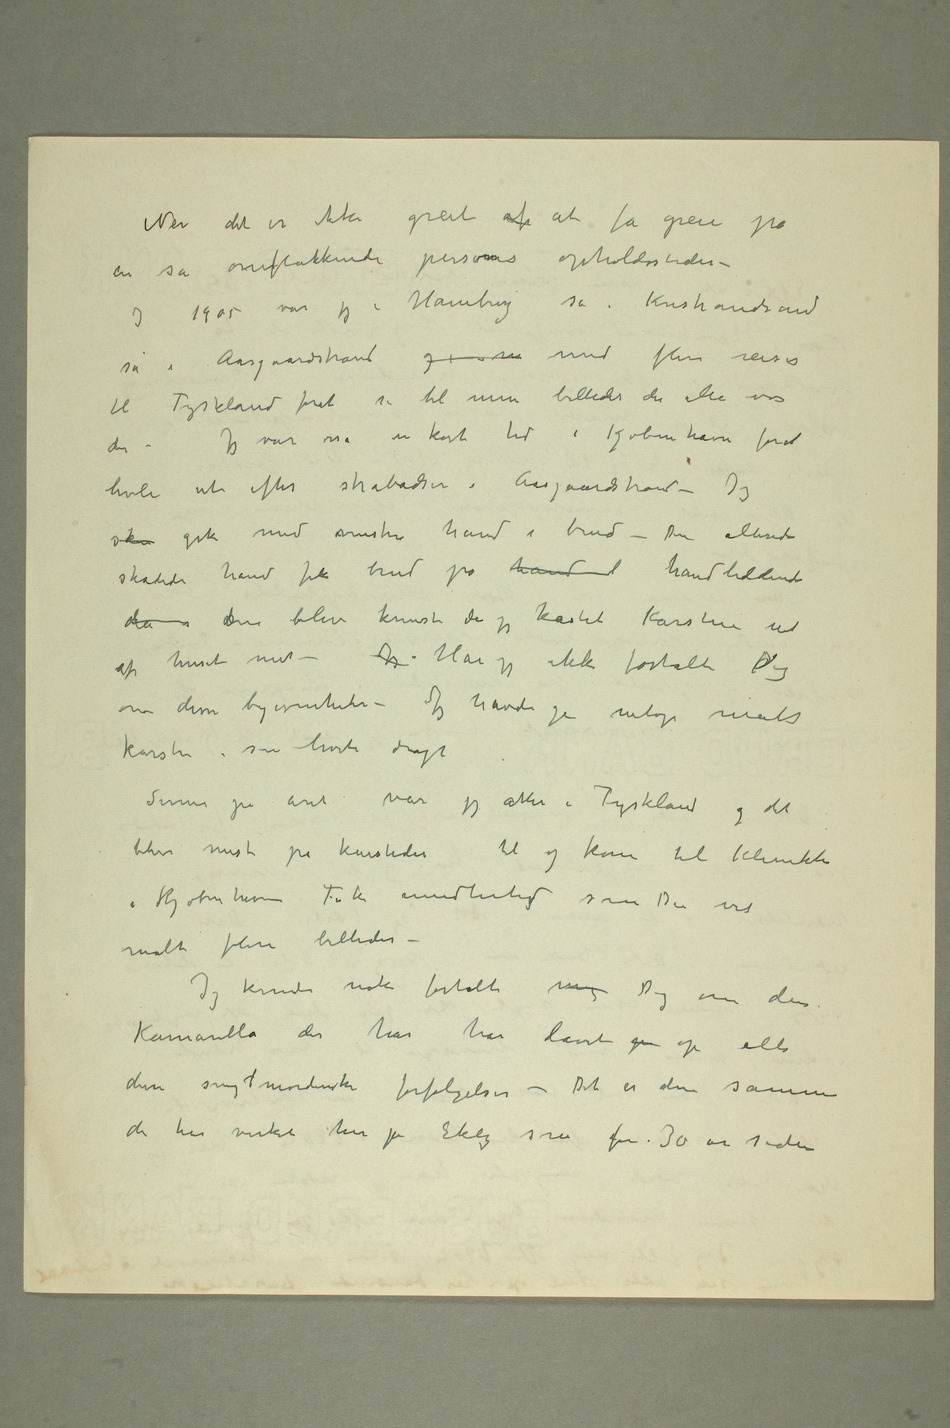 Nei det er ikke greit af at få greie på
en så omflakkende persons opholdssteder –
I 1905 var jeg i Hamburg så i Kristiandsand
så i Aasgaardstrand med flere reiser
til Tyskland forat se til mine billeder der alle var
der – Jeg var også en kort tid i Kjøbenhavn forat
hvile ut efter strabadser i Aasgaardstrand – Jeg
gik med venstre hånd i bind – Den allerede
skadede hånd fik brud på hånd håndleddene
da den blev knust da jeg kastet Karsten ud
af huset mit – Jeg Har jeg ikke fortalt Dig
om disse begivenheter – Jeg havde jo netop malt
Karsten i sin hvite dragt
Senere på året var jeg atter i Tyskland og det
blev mest på kursteder til jeg kom til Klinikken
i Kjøbenhavn Fik imidlertid som Du ved
malt flere billeder –
Jeg kunde nok fortalt mig Dig om den
Kamarilla der har har lavet op alle
disse snigmorderiske forfølgelser – Det er den samme
der har virket her på Ekely som for 30 år siden